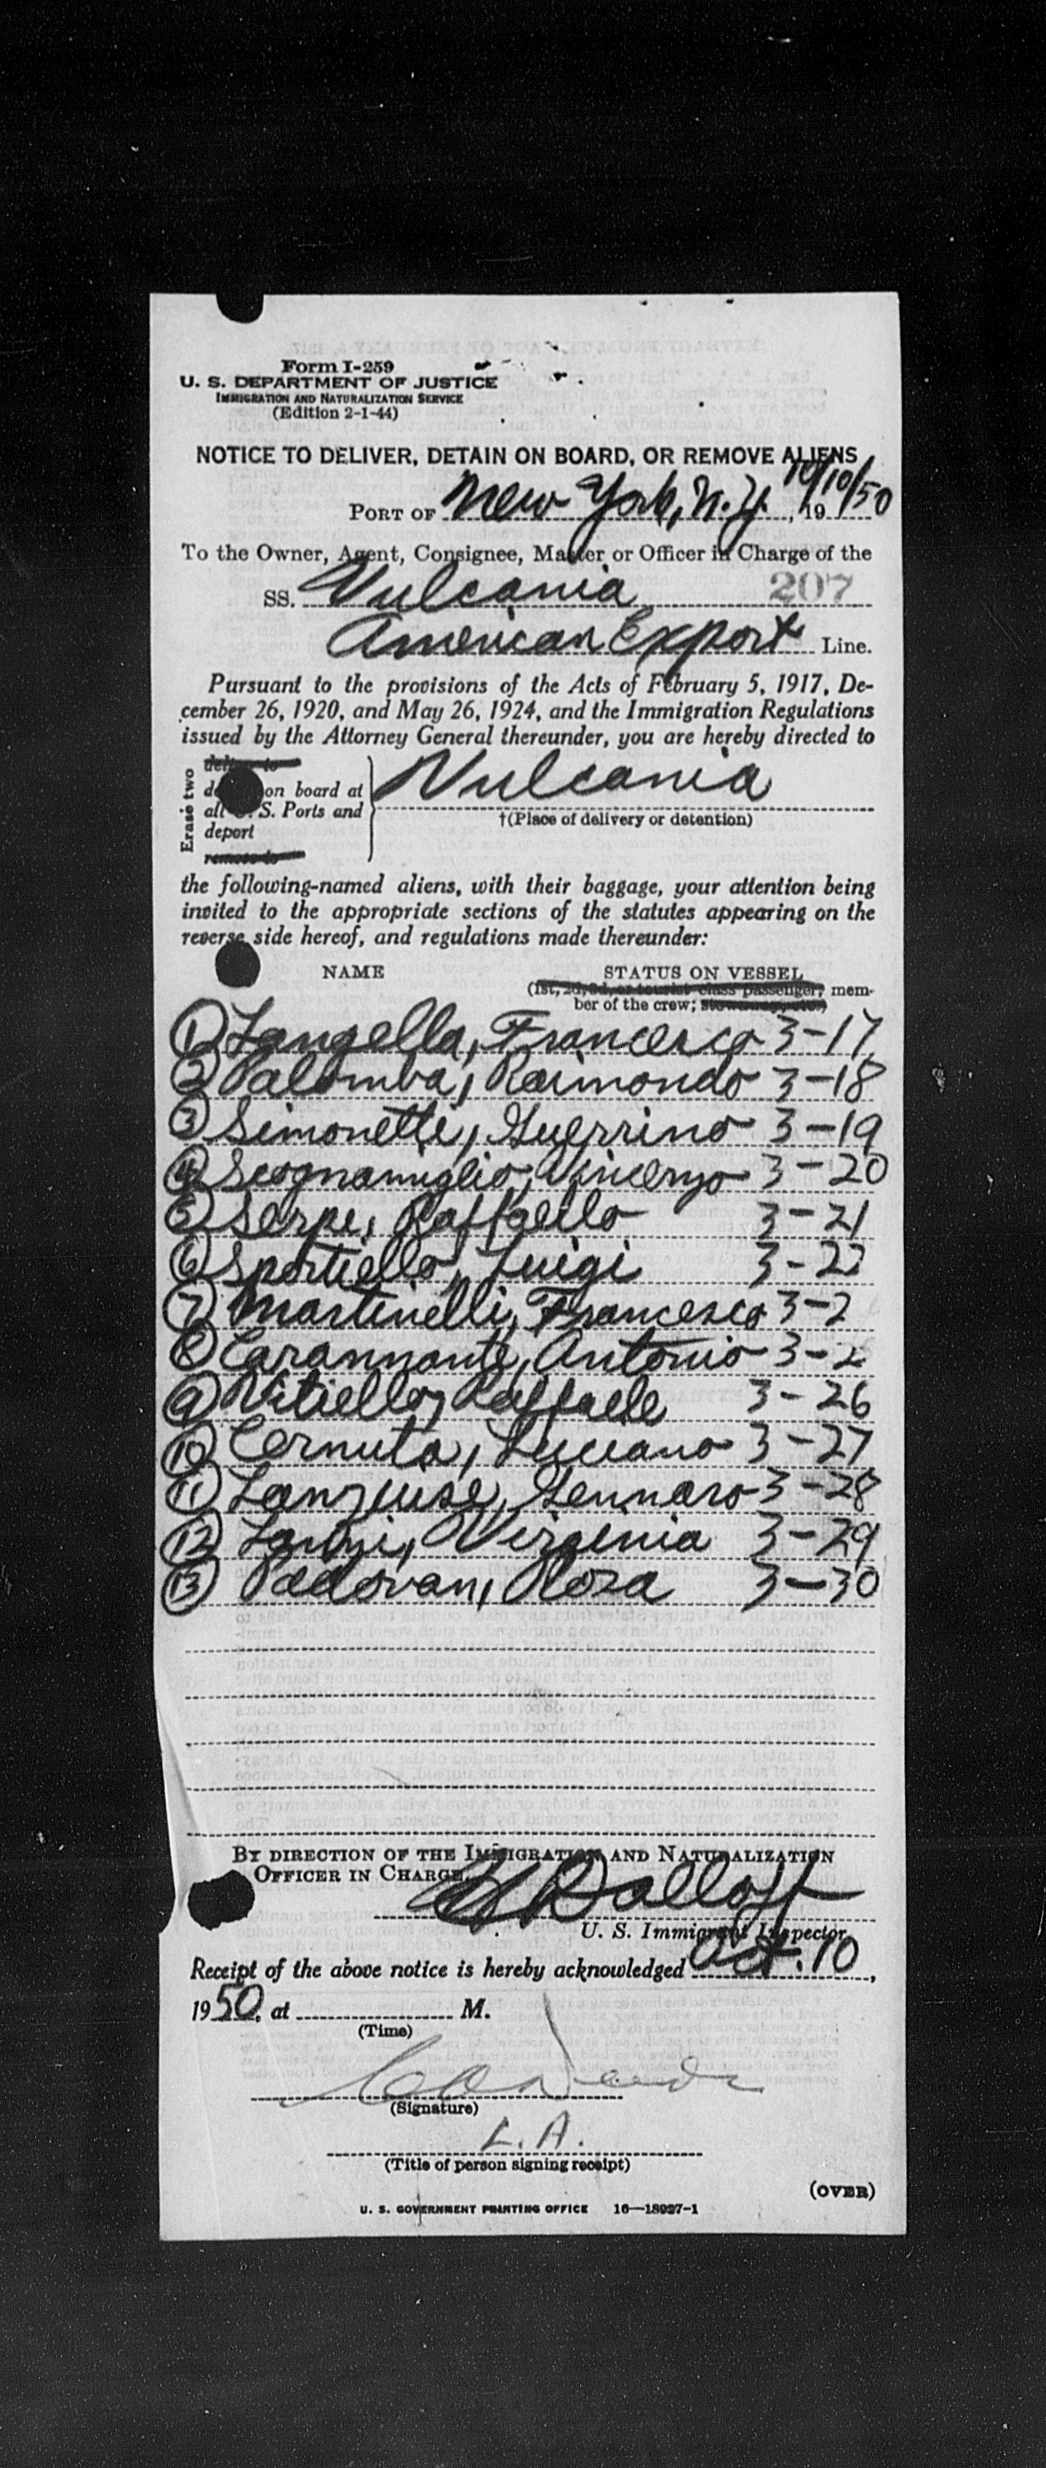 Form I-259
U. S. DEPARTMENT OF JUSTICE
IMMIGRATION AND NATURALIZATION SERVICE
(Edition 2-1-44)
NOTICE TO DELIVER, DETAIN ON BOARD, OR REMOVE ALIENS
PORT OF New York, N.Y. 10/10/50, 19
To the Owner, Agent, Consignee, Master or Officer in Charge of the
SS. Vulcania 207
American Export Line.
Pursuant to the provisions of the Acts of February 5, 1917, De-
cember 26, 1920, and May 26, 1924, and the Immigration Regulations
issued by the Attorney General thereunder, you are hereby directed to
Erase two
deliver to
on board at Vulcania
all U. S. Ports and
deport
†(Place of delivery or detention)
remove to
the following-named aliens, with their baggage, your attention being
invited to the appropriate sections of the statutes appearing on the
reverse side hereof, and regulations made thereunder:
NAME STATUS ON VESSEL
(1st, 2d, 3d, or tourist class passenger; mem-
ber of the crew; stowaway, etc.)
1 Langella, Francesco 3-17
2 Palomba, Raimondo 3-18
3 Simonetti, Guerrino 3-19
4 Scognamiglio, Vincenzo 3-20
5 Serpe, Raffaello 3-21
6 Sportiello, Luigi 3-22
7 Martinelli, Francesco 3-2
8 Carannante, Antonio 3-2
9 Vitiello, Raffaele 3-26
10 Cernuta, Luciano 3-27
11 Lanzuise, Gennaro 3-28
12 Virginia 3-29
13 Padovan, Rosa 3-30
BY DIRECTION OF THE IMMIGRATION AND NATURALIZATION
OFFICER IN CHARGE.
U. S. Immigrant Inspector.
Receipt of the above notice is hereby acknowledged Oct. 10,
1950, at M.
(Time)
(Signature)
L. A.
(Title of person signing receipt)
(OVER)
U. S. GOVERNMENT PRINTING OFFICE 16—18927-1